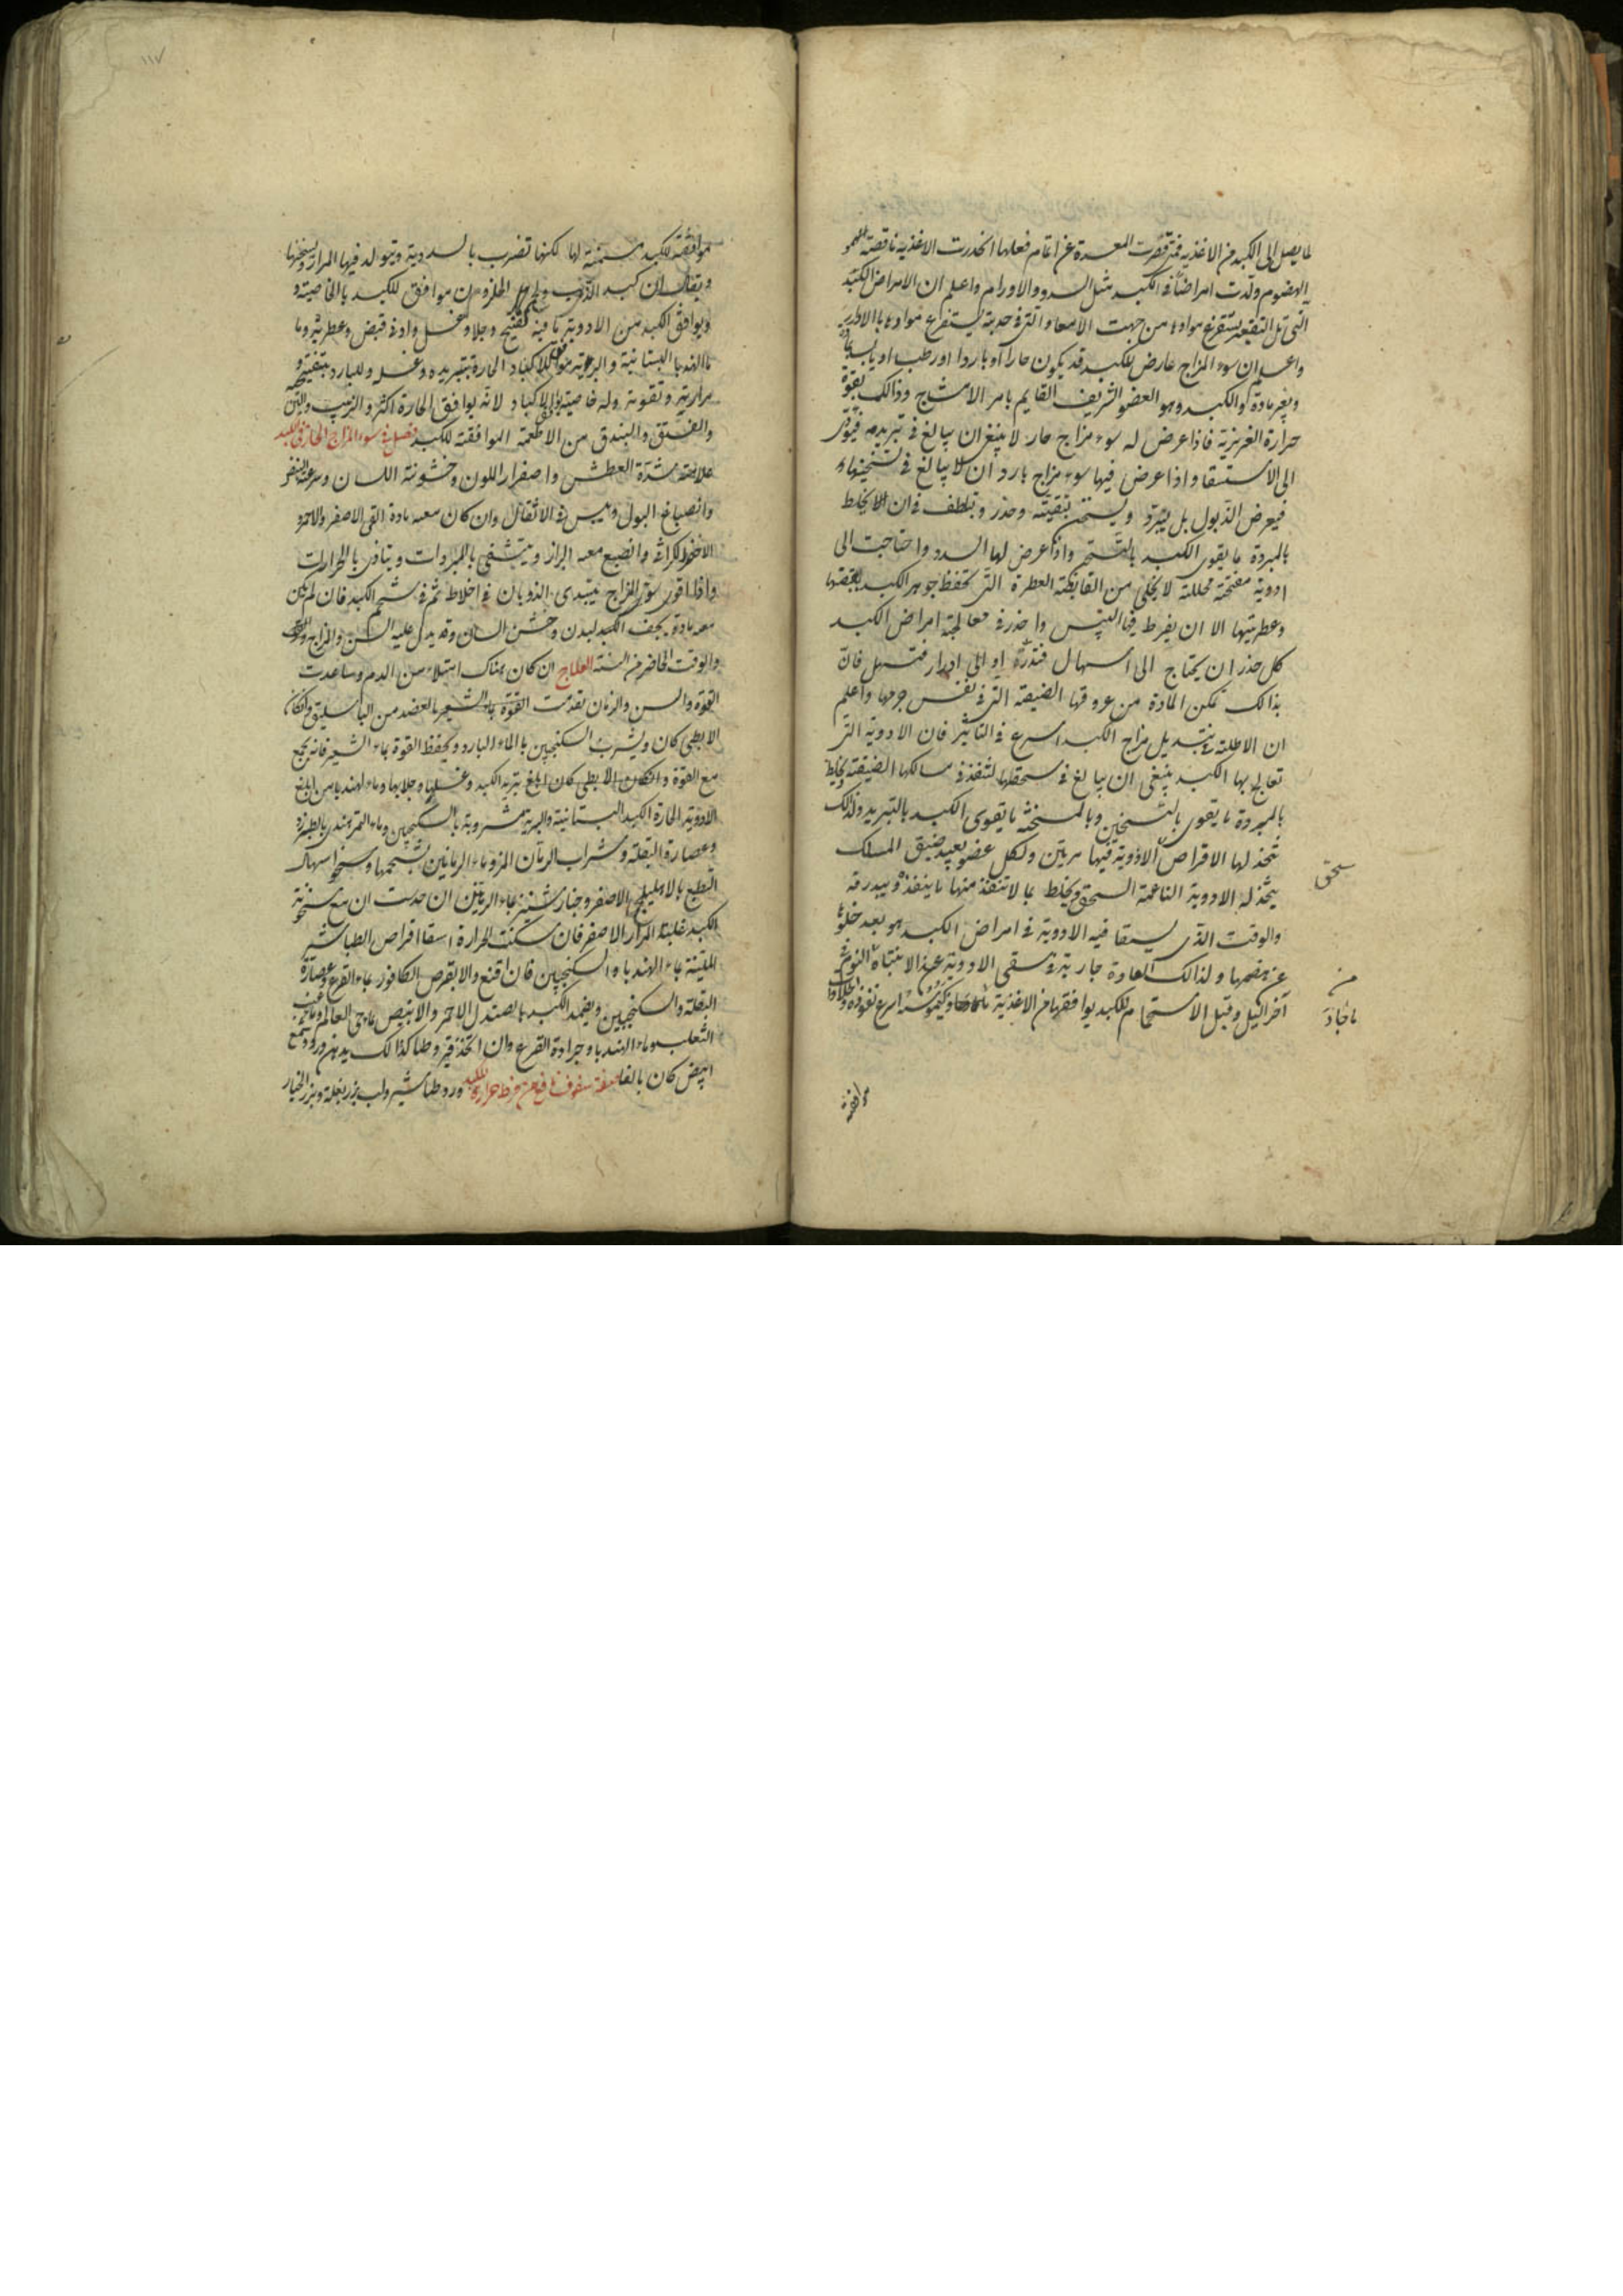 لما يصل الى الكبد من الاغذية فمتى قصرت المعدة عن اتمام فعلها انحدرت الاغذية ناقصة
الهضوم ولدت امراضا فى الكبد مثل السدد والاورام واعلم ان الامراض الكبد
التى تستفرغ موادها من جهت الامعا والتى فى حدبته يستفرغ موادها بالادرار
واعلم ان سوء المزاج عارض للكبد قد يكون حارا او باردا او رطب او يابسا
وبغير مادة والكبد وهو العضو الشريف القايم بامر الامشاج وذالك بقوة
حرارة الغريزية فاذا عرض له سوء مزاج حار لا ينبغى ان يبالغ فى تبريده فيؤدى
الى الاستسقا واذا عرض فيها سوء مزاج بارد ان لا يبالغ فى تسخينها
فيعرض الذبول بل يبرد ويسخن بتقيته وحذر وتلطف فى ان يخلط
بالمبردة ما يقوى الكبد واذا عرض لها السدد واحتاجت الى
ادوية مفتحة محللة لا يخلى من القابضة العطرة التى تحفظ جوهر الكبد بقبضها
وعطريتها الا ان يفرط فيها اليبس واحذر فى معالجة امراض الكبد
كل حذر ان يحتاج الى اسهال فتدره او الى ادرار فتسهل فان
بذالك تمكن المادة من عروقها الضيقة التى فى نفس جرمها واعلم
ان الاطلية تبديل مزاج الكبد اسرع فى التاثير فان الادوية التى
تعالج بها الكبد ينبغى ان يبالغ فى سحقها لتنفذ فى مسالكها الضيقة ويخلط
بالمبردة ما يقوى بالتسخين وبالمسخنة ما يقوى الكبد بالتبريد ولذالك
تتخذ لها الاقراص الادوية فيها مرتين ولكل عضو بعيد ضيق المسلك
يتخذ له الادوية الناعمة السحق ويخلط بما لا تنفذ منها ما ينفذ ويبدرقه
سحق
والوقت الذى يسقا فيه الادوية فى امراض الكبد هو بعد خلوها
عن هضمها ولذالك العادة جارية فى سقى الادوية عند الانتباه من النوم
من
آخر الليل وقبل الاستحمام للكبد يوافقها من الاغذية ما كيموسه اسرع نفوذه
ماخاد
موافقة
١١٧
موافقة للكبد مسمنة لها لكنها تضرب بالسدوية ويتولد فيها المرار وتسخنها
ويقال ان كبد الذيب ولحم الحلزون موافق للكبد بالخاصية و
ويوافق الكبد من الادوية ما فيه تفتيح وجلا وغسل وادنى قبض وعطرية وما
ماالهندبا البستانية والبرية موافق للاكباد الحارة بتبريده وغسله وللبارد بتفتيحه
مرارته وتقوية وله خاصية الاكباد لانه يوافق الحارة اكثر والزبيب والتين
والفستق والبندق من الاطعمة الموافقة للكبد فصل فى سوء المزاج الحار فى الكبد
علامته شدة العطش واصفرار اللون وخشونة اللسان وسرعة النبض
وانصباغ البول ويبس فى الاثقال وان كان معه مادة القى الاصفر والاحمر
الاخضر الكراثى وانصبغ معه البراز ويتشفى بالمبردات ويتاذى بالحرارات
واذا قوى سوء المزاج يبتدى الذوبان فى اخلاط ثم فى شحم الكبد فان لم يكن
معه مادة يجف الكبد لبدن وخشن اللسان وقد يدل عليه السن والمزاج
والوقت الحاضر من السنة العلاج ان كان هناك امتلاء من الدم وساعدت
القوة والسن والزمان تقدمت القوة بماء الشعير بالعضد من الباسليق وان كان
الابطى كان ويشرب السكنجبين بالماء البارد ويحفظ القوة بماء الشعير فانه يجمع
مع القوة وان كان الابطى كان ابلغ تبريد الكبد وغسلها وجلابها وماء الهندبا من ابلغ
الادوية الحارة الكبد البستانية والبرية مشروبة بالسكنجبين وماء التمر هندى
وعصارة البقلة وشراب الرمان المز وماء الرمانين بشحمها اسهال
الطبع بالاهليلج الاصفر وخيارشنبر بماء الرمانين ان حدست ان مع سخونة
الكبد غلبة المرار الاصفر فان سكنت الحرارة اسقا اقراص الطباشير
الملينة بماء الهندباء والسكنجبين فان اقنع والا بقرص الكافور بماء القرع وعصارة
البقلة والسكنجبين ويضمد الكبد بالصندل الاحمر والابيض بماء حى العالم وعنب
الثعلب وماء الهندبا وجرادة القرع وان اتخذ قيروطيا كذالك بدهن ورد وشمع
ابيض كان بالغا صفة سفوف نافع من فرط حرارة الكبد ورد طباشير ولب بزر بقلة وبزر الخيار